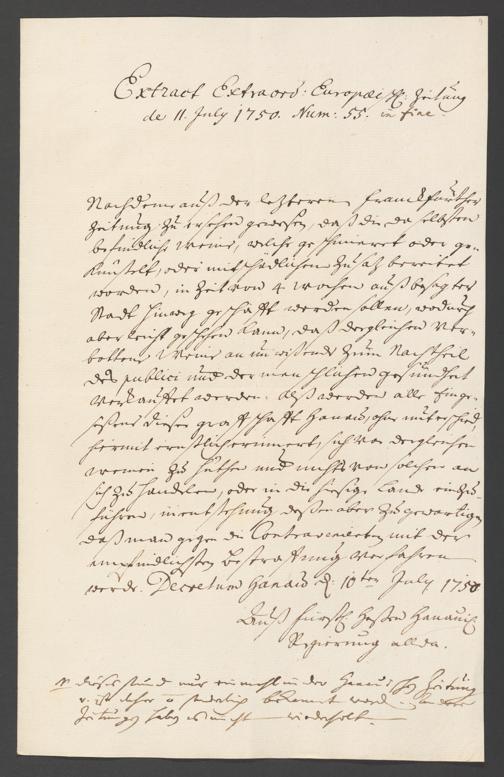 Extract Extraord: Europæisch: Zeitung
de 11. July 1750. Num: 55. in fine.
Nachdeme auß der letzteren Franckfurther
Zeitung zu ersehen gewesen, daß die daselbsten
befindliche Weine, welche geschmieret oder ge-
künstelt, oder mit schädlichen Zusatz bereitet
worden, in Zeit von 4 Wochen auß besagter
Statt hinweg geschafft werden sollen, wodurch
aber leicht geschehen kann, daß dergleichen ver-
bottene Weine an unwissende zum Nachtheil
des publici und der menschlichen gesundheit
verkauffet werden. Alß werden alle Einge-
sessene dieser graffschafft Hanau, ohne unterschied,
hiermit ernstlich erinnert, sich vor dergleichen
weinen zu hüthen und nichts von solchen an
sich zu handelen, oder in die hiesige Lande einzu-
führen, in entstehung dessen aber zu gewärtigen
daß man gegen die Contravenienten mit der
empfindlichsten bestraffung verfahren
werde. Decretum Hanau d: 10ten July 1750
Auß fürstl: Hessen Hanauisch:
Regierung allda.
dieses stund nur einmahl in der Hanauischen Zeitung
ist daher bekannt
Zeitungen haben es nicht wiederholt.